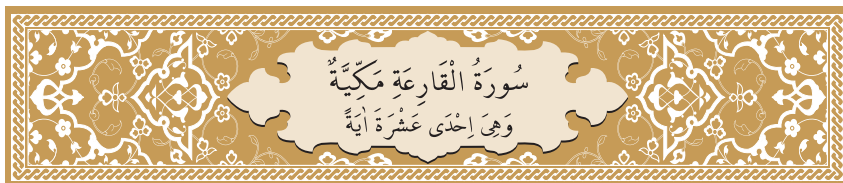 سُورَةُ الْقَارِعَةِ مَكِّيَّةٌ
وَهِىَ اِحْدٰى عَشْرَةَ اٰيَةً